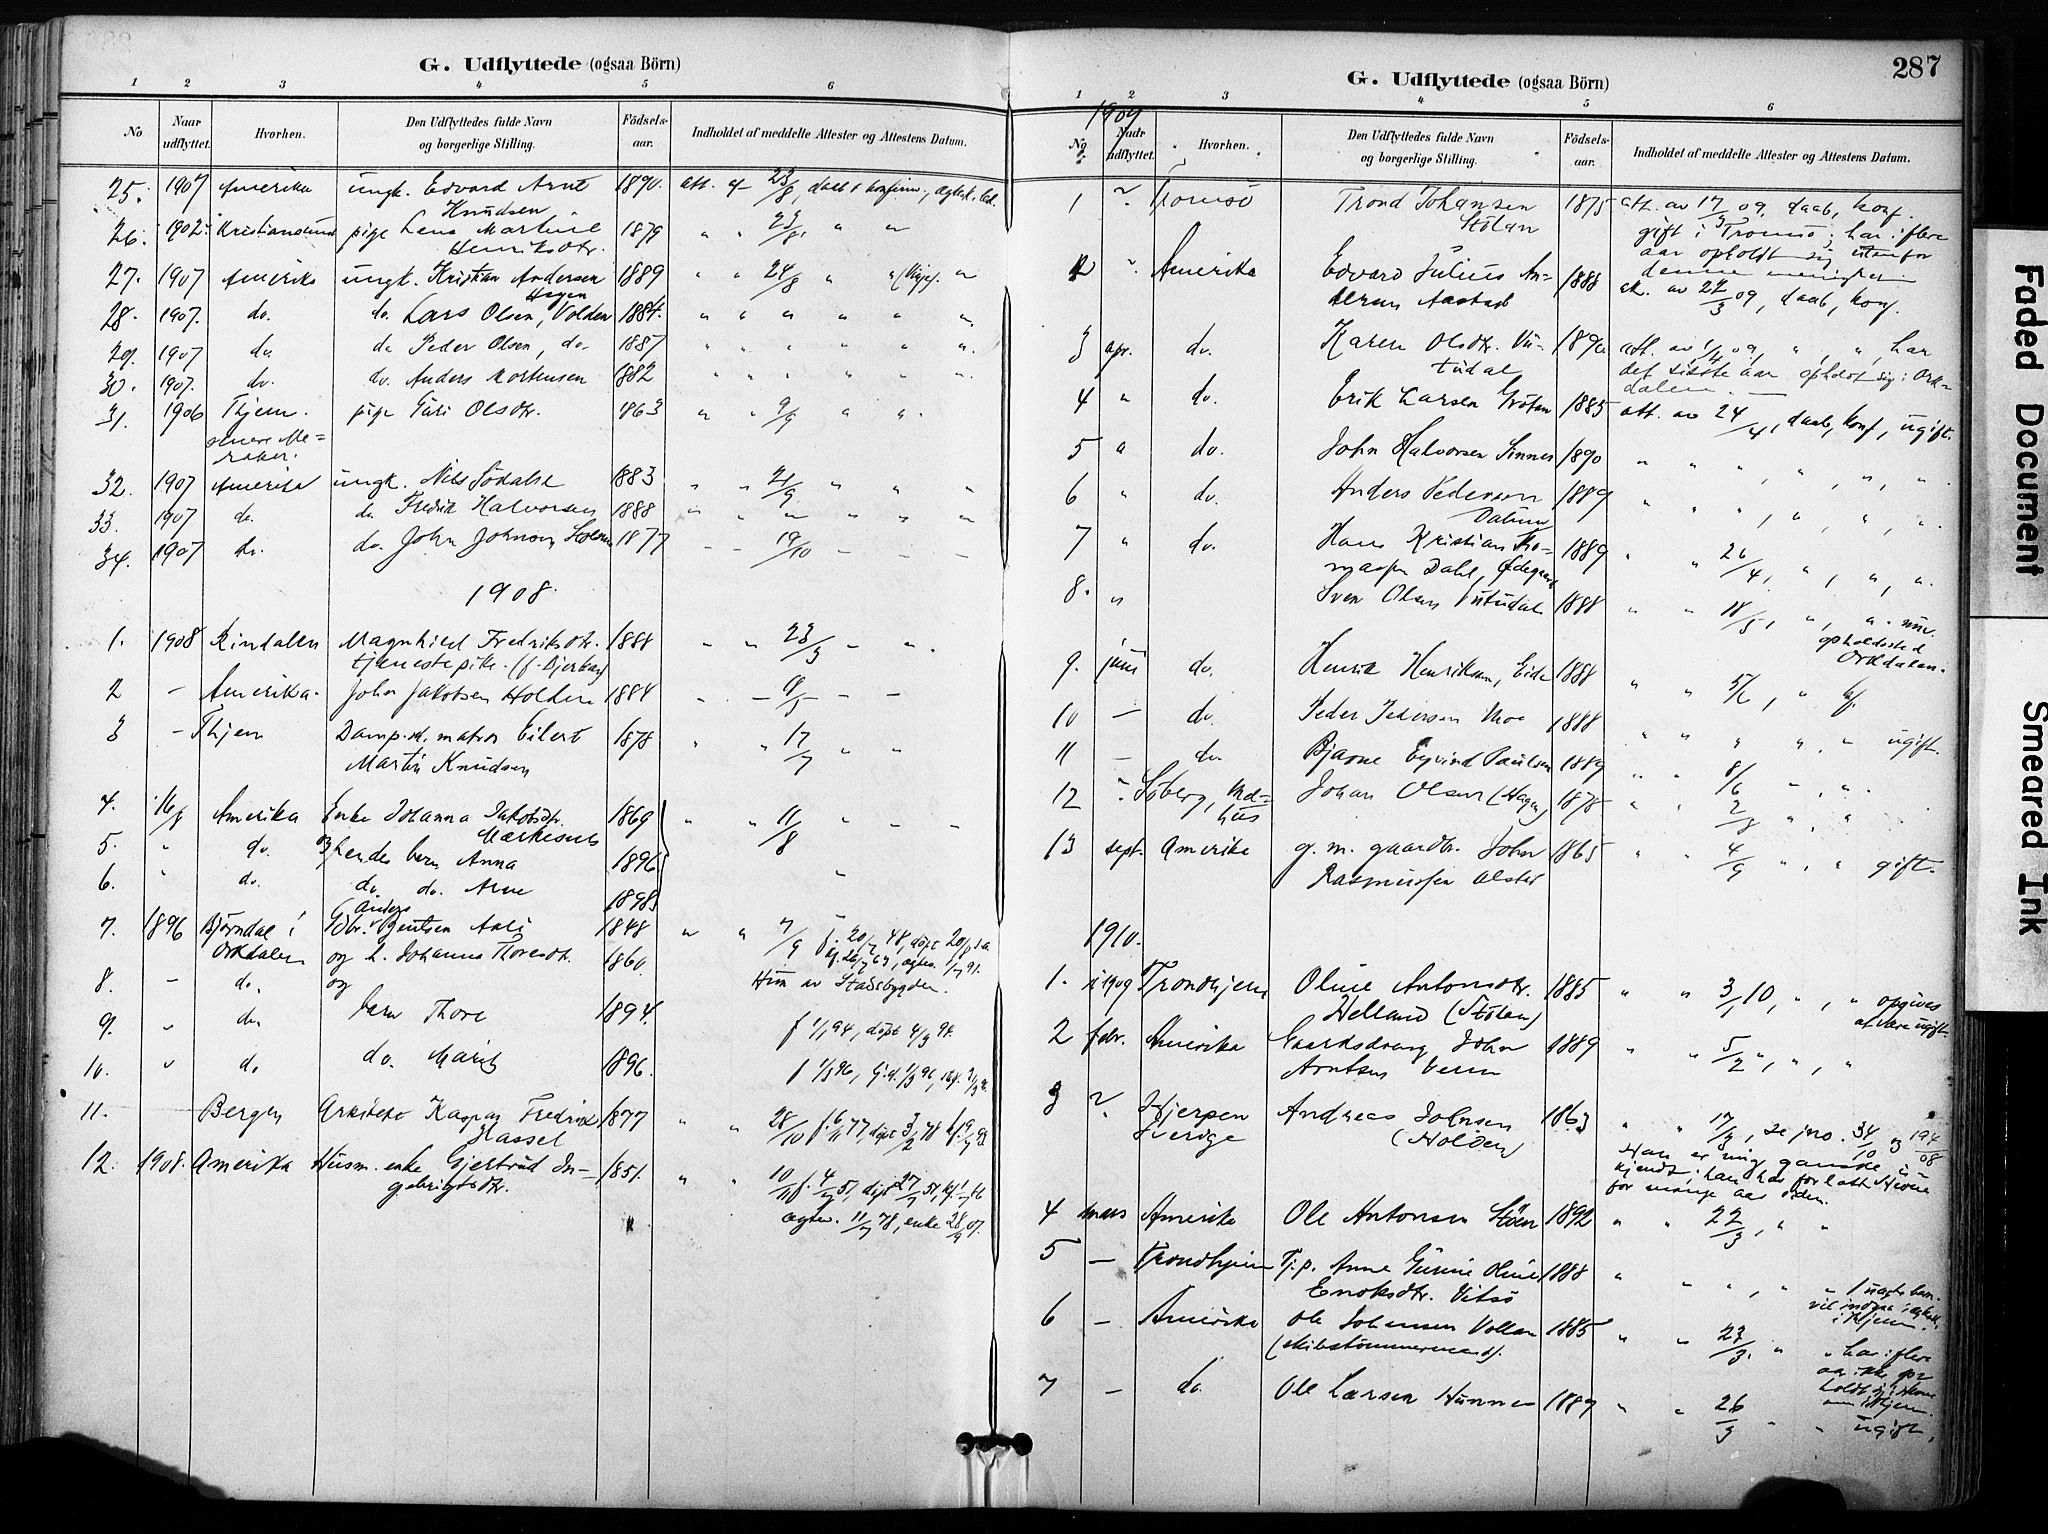 G. Udflyttede (ogsaa Börn)
1 2 3 4 5 6
No Naar udflyttet. Hvorhen. Den Udflyttedes fulde Navn og borgerlige Stilling. Födsels-aar. Indholdet af meddelte Attester og Attestens Datum.
25. 1907 Amerika ungk. Edvard Arnt 1890. att. af 23/8, daab & konfirm.,
Knudsen
26. 1902. Kristiansund pige Lena Martine 1879 " " 23/8. " "
Henriksdtr.
27. 1907 Amerika ungk. Kristian Andersen 1889 " " 24/8 " "
Hagen
28. 1907. do. do. Lars Olsen, Volden 1884. " " " " " "
29. 1907 do. do. Peder Olsen, do. 1887 " " " " " "
30. 1907. do. do. Anders Mortensen 1882 " " " " " "
31. 1906 Thjem. pige Guri Olsdtr. 1863 " " 9/9 " "
senere Me=
raker.
32. 1907 Amerika ungk. Nils Södahl 1883 " " 21/9 " " "
33. 1907 do. do. Fredrik Halvorsen 1888 " " " " " "
34. 1907 do. do. John Johnsen 1877 - - 19/10 - - -
1908.
1. 1908 Rindalen Magnhild Fredriksdtr. 1888 " " 23/3 " "
tjenestepike.
2 - Amerika. John Jakobsen Holden 1884 - - 9/5 - -
3 - Thjem Damp.sk. matros Eilert 1878 " " 17/7 " "
Martin Knudsen
4. 16/8 Amerika Enke Johanna Jakobsdtr. 1869 " " 11/8 " " "
5. " do. og hendes barn Anna 1896 "
6. " do. do. do. Arne 1898
Anders
7. 1896 Björndal i Gdbr. Bentsen Aali 1848 " " 7/9 f. 20/7 48, döpt 20/8 s.a.
Orkdalen og h. Johanna Thoresdtr. 1860.
8. - do. og Hun av Stadsbygden.
9. " do. barn Thore 1894. f 1/1 94, döpt 4/3 94.
10. " do do. Marit 1896. f 1/3 96,
11. Bergen Arkitekt Kaspar Fredrik 1877 " " 28/10 f. 6/11 77, döpt 3/2 78
Hassel
12. 1908. Amerika Husm. enke Gjertrud In- 1851. " " 10/11 f. 4/4 51, döpt 27/4 51,
gebrigtsdtr.
ægtev. 11/7 78, enke 28/9 07.
287
G. Udflyttede (ogsaa Börn)
1 2 3 4 5 6
1909
No Naar udflyttet. Hvorhen. Den Udflyttedes fulde Navn og borgerlige Stilling. Födsels-aar. Indholdet af meddelte Attester og Attestens Datum.
1 ? Tromsö Trond Johansen 1875 att. av 17/3 09, daab, konf.
Stölan gift i Tromsö; har i flere
aar opholdt sig utenfor
denne menighet
2 ? Amerika Edvard Julius An- 1888 at. av 22/3 09, daab, konf.
dersen Aastad
3 apr. do. Karen Olsdtr. Vu- 1890 att. av 1/4 09. " , " , har
tudal det sidste aar opholdt sig i Ork-
dalen.
4 " do. Erik Larsen Grötan 1885 att. av 24/4, daab, konf, ugift.
5 " do. John Halvorsen Sinnes 1890 " " " " , " , "
6 " do. Anders Pedersen 1889 " " " , " , " , "
7 " do. Hans Kristian Tho- 1889 " " 26/4, " , " , "
massen Dahl, Ödegaard
8. " Sven Olsen Vutudal 1888 " " 18/5, " , " nuv.
opholdssted
Orkdalen.
9. juni do. Henrik Henriksen, Eide 1888 " " 5/6, " kf.
10 - do. Peder Pedersen Moe 1888 " " " " , " ugift.
11 - do. Bjarne Eyvind Paulsen 1889 " " 8/6 " , "
12 ? Söberg, Mel=
hus Johan Olsen (Hagen) 1878 " " 2/8 " , "
13 sept. Amerika g. m. gaardbr. John 1865 " " 4/9 " , " gift.
Rasmussen Alstad
1910.
1. i 1909 Trondhjem Oline Antonsdtr. 1885 " " 3/1 10, " , " opgives
Helland (Stölan) at være ugift.
2 febr. Amerika Gaardsdreng John 1889 " " 5/2 " , " , "
Arntsen Veren
3 ? Hjerpen Andreas Johnsen 1863 " " 17/3, se jno. 34/10 og 194/08
Sverige (Holden) Han er mig ganske u=
kjendt; han har forlatt Hevne
for mange aar siden.
4 mars Amerika Ole Antonsen Stöen 1892 " " 22/3, " "
5 - Trondhjem Tj.p. Anne Gurine Oline 1888 " " " , " " 1 uægte barn.
Enoksdtr. Vitsö
6 - Amerika Ole Johansen Vollan 1885 " " 23/3. " " har i flere
(skibstömmermand). aar ikke op=
holdt sig i Hevne
7 - do. Ole Larsen Hunnes 1889 " " 26/3 " " ugift.
Faded Document
Smeared Ink